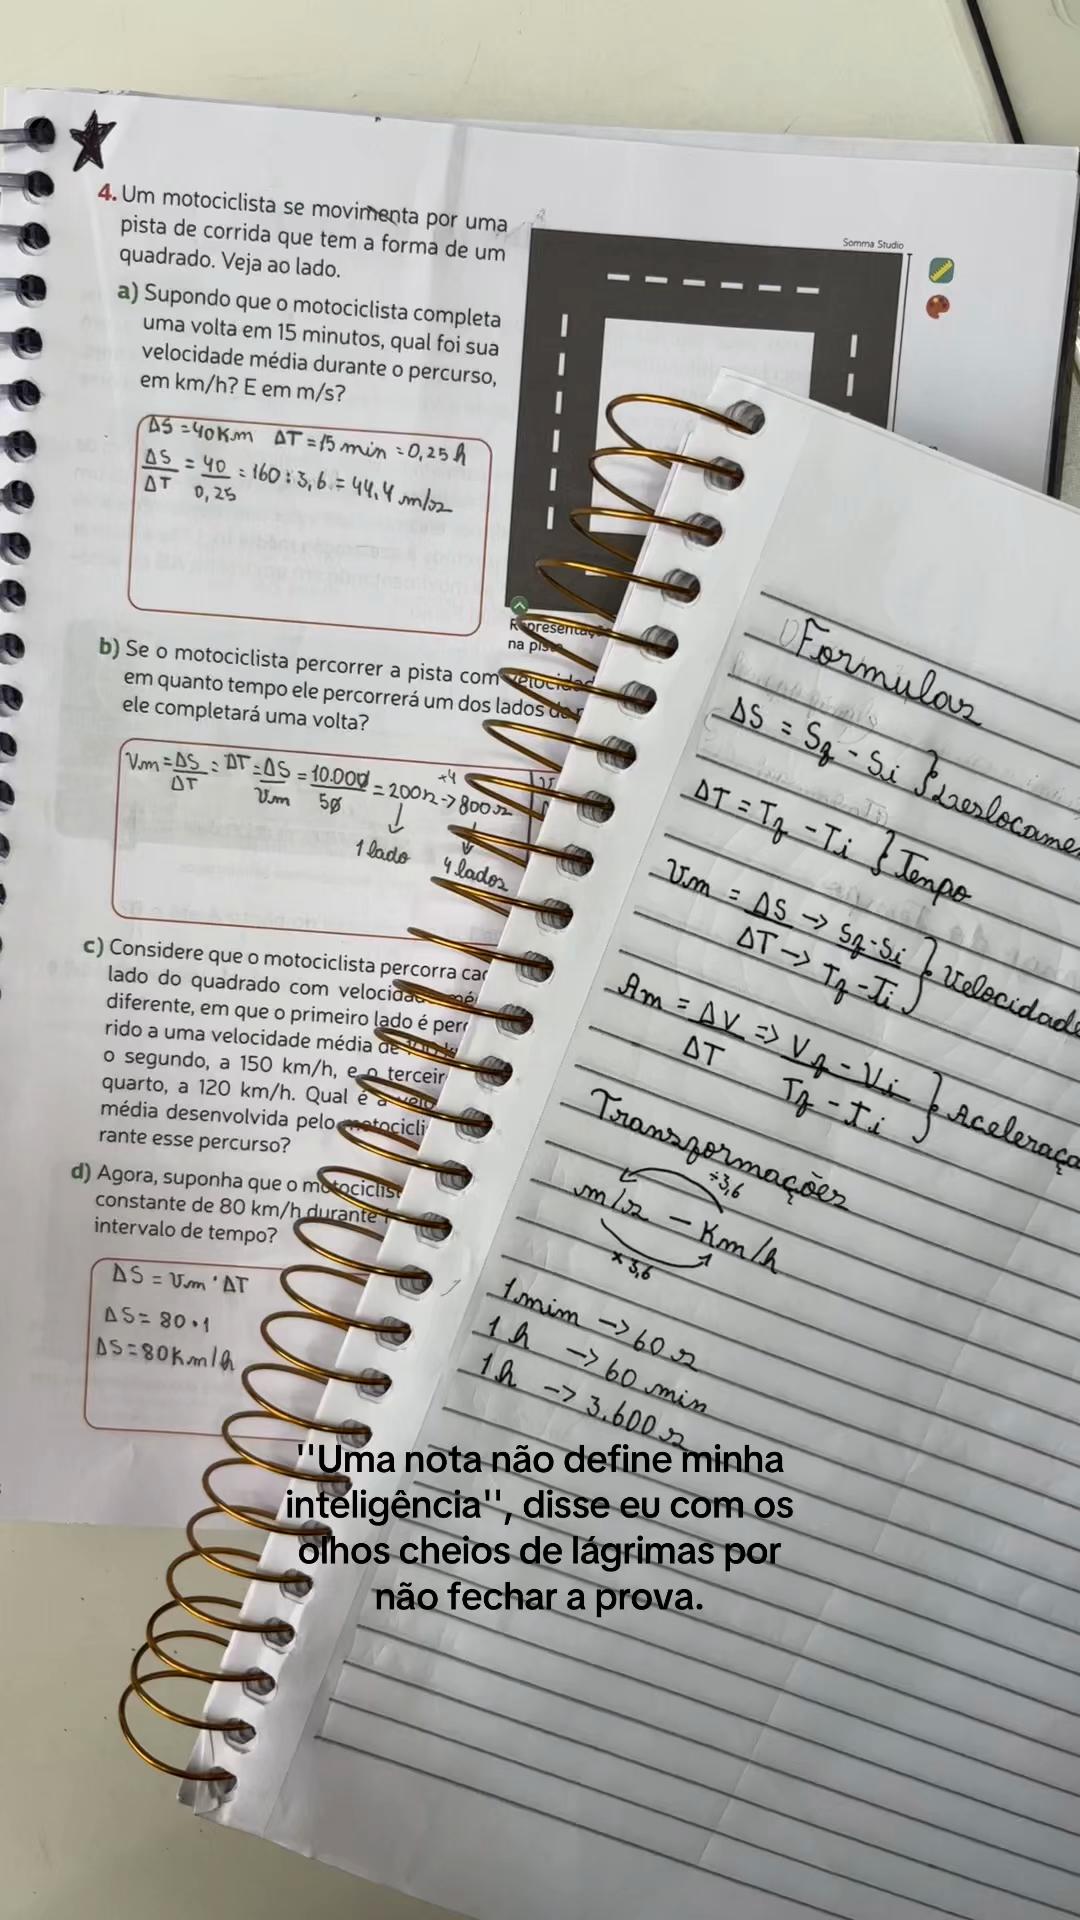 4. Um motociclista se movimenta por uma
pista de corrida que tem a forma de um
quadrado. Veja ao lado.
a) Supondo que o motociclista completa
uma volta em 15 minutos, qual foi sua
velocidade média durante o percurso,
em km/h? E em m/s?
ΔS = 40Km ΔT = 15 min = 0,25 h
ΔS/ΔT = 40/0,25 = 160 : 3,6 = 44,4 m/s
Somma Studio
Representaç
na pis
b) Se o motociclista percorrer a pista com velocidad
em quanto tempo ele percorrerá um dos lados da
ele completará uma volta?
Vm = ΔS/ΔT = ΔT = ΔS/Vm = 10.000/50 = 200s -> 800s
×4
1 lado
4 lados
c) Considere que o motociclista percorra cad
lado do quadrado com velocidad mé
diferente, em que o primeiro lado é perc
rido a uma velocidade média de
o segundo, a 150 km/h, e o terceir
quarto, a 120 km/h. Qual é a velo
média desenvolvida pelo motocicli
rante esse percurso?
d) Agora, suponha que o motociclist
constante de 80 km/h durante
intervalo de tempo?
ΔS = Vm · ΔT
ΔS = 80 · 1
ΔS = 80Km/h
Formulas
ΔS = Sf - Si } Deslocame
ΔT = Tf - Ti } Tempo
Vm = ΔS/ΔT -> Sf - Si/Tf - Ti } Velocidade
Am = ΔV/ΔT => Vf - Vi/Tf - Ti } Aceleraça
Transformações
÷3,6
m/s - Km/h
×3,6
1 mim -> 60 s
1 h -> 60 min
1h -> 3.600 s
"Uma nota não define minha
inteligência", disse eu com os
olhos cheios de lágrimas por
não fechar a prova.